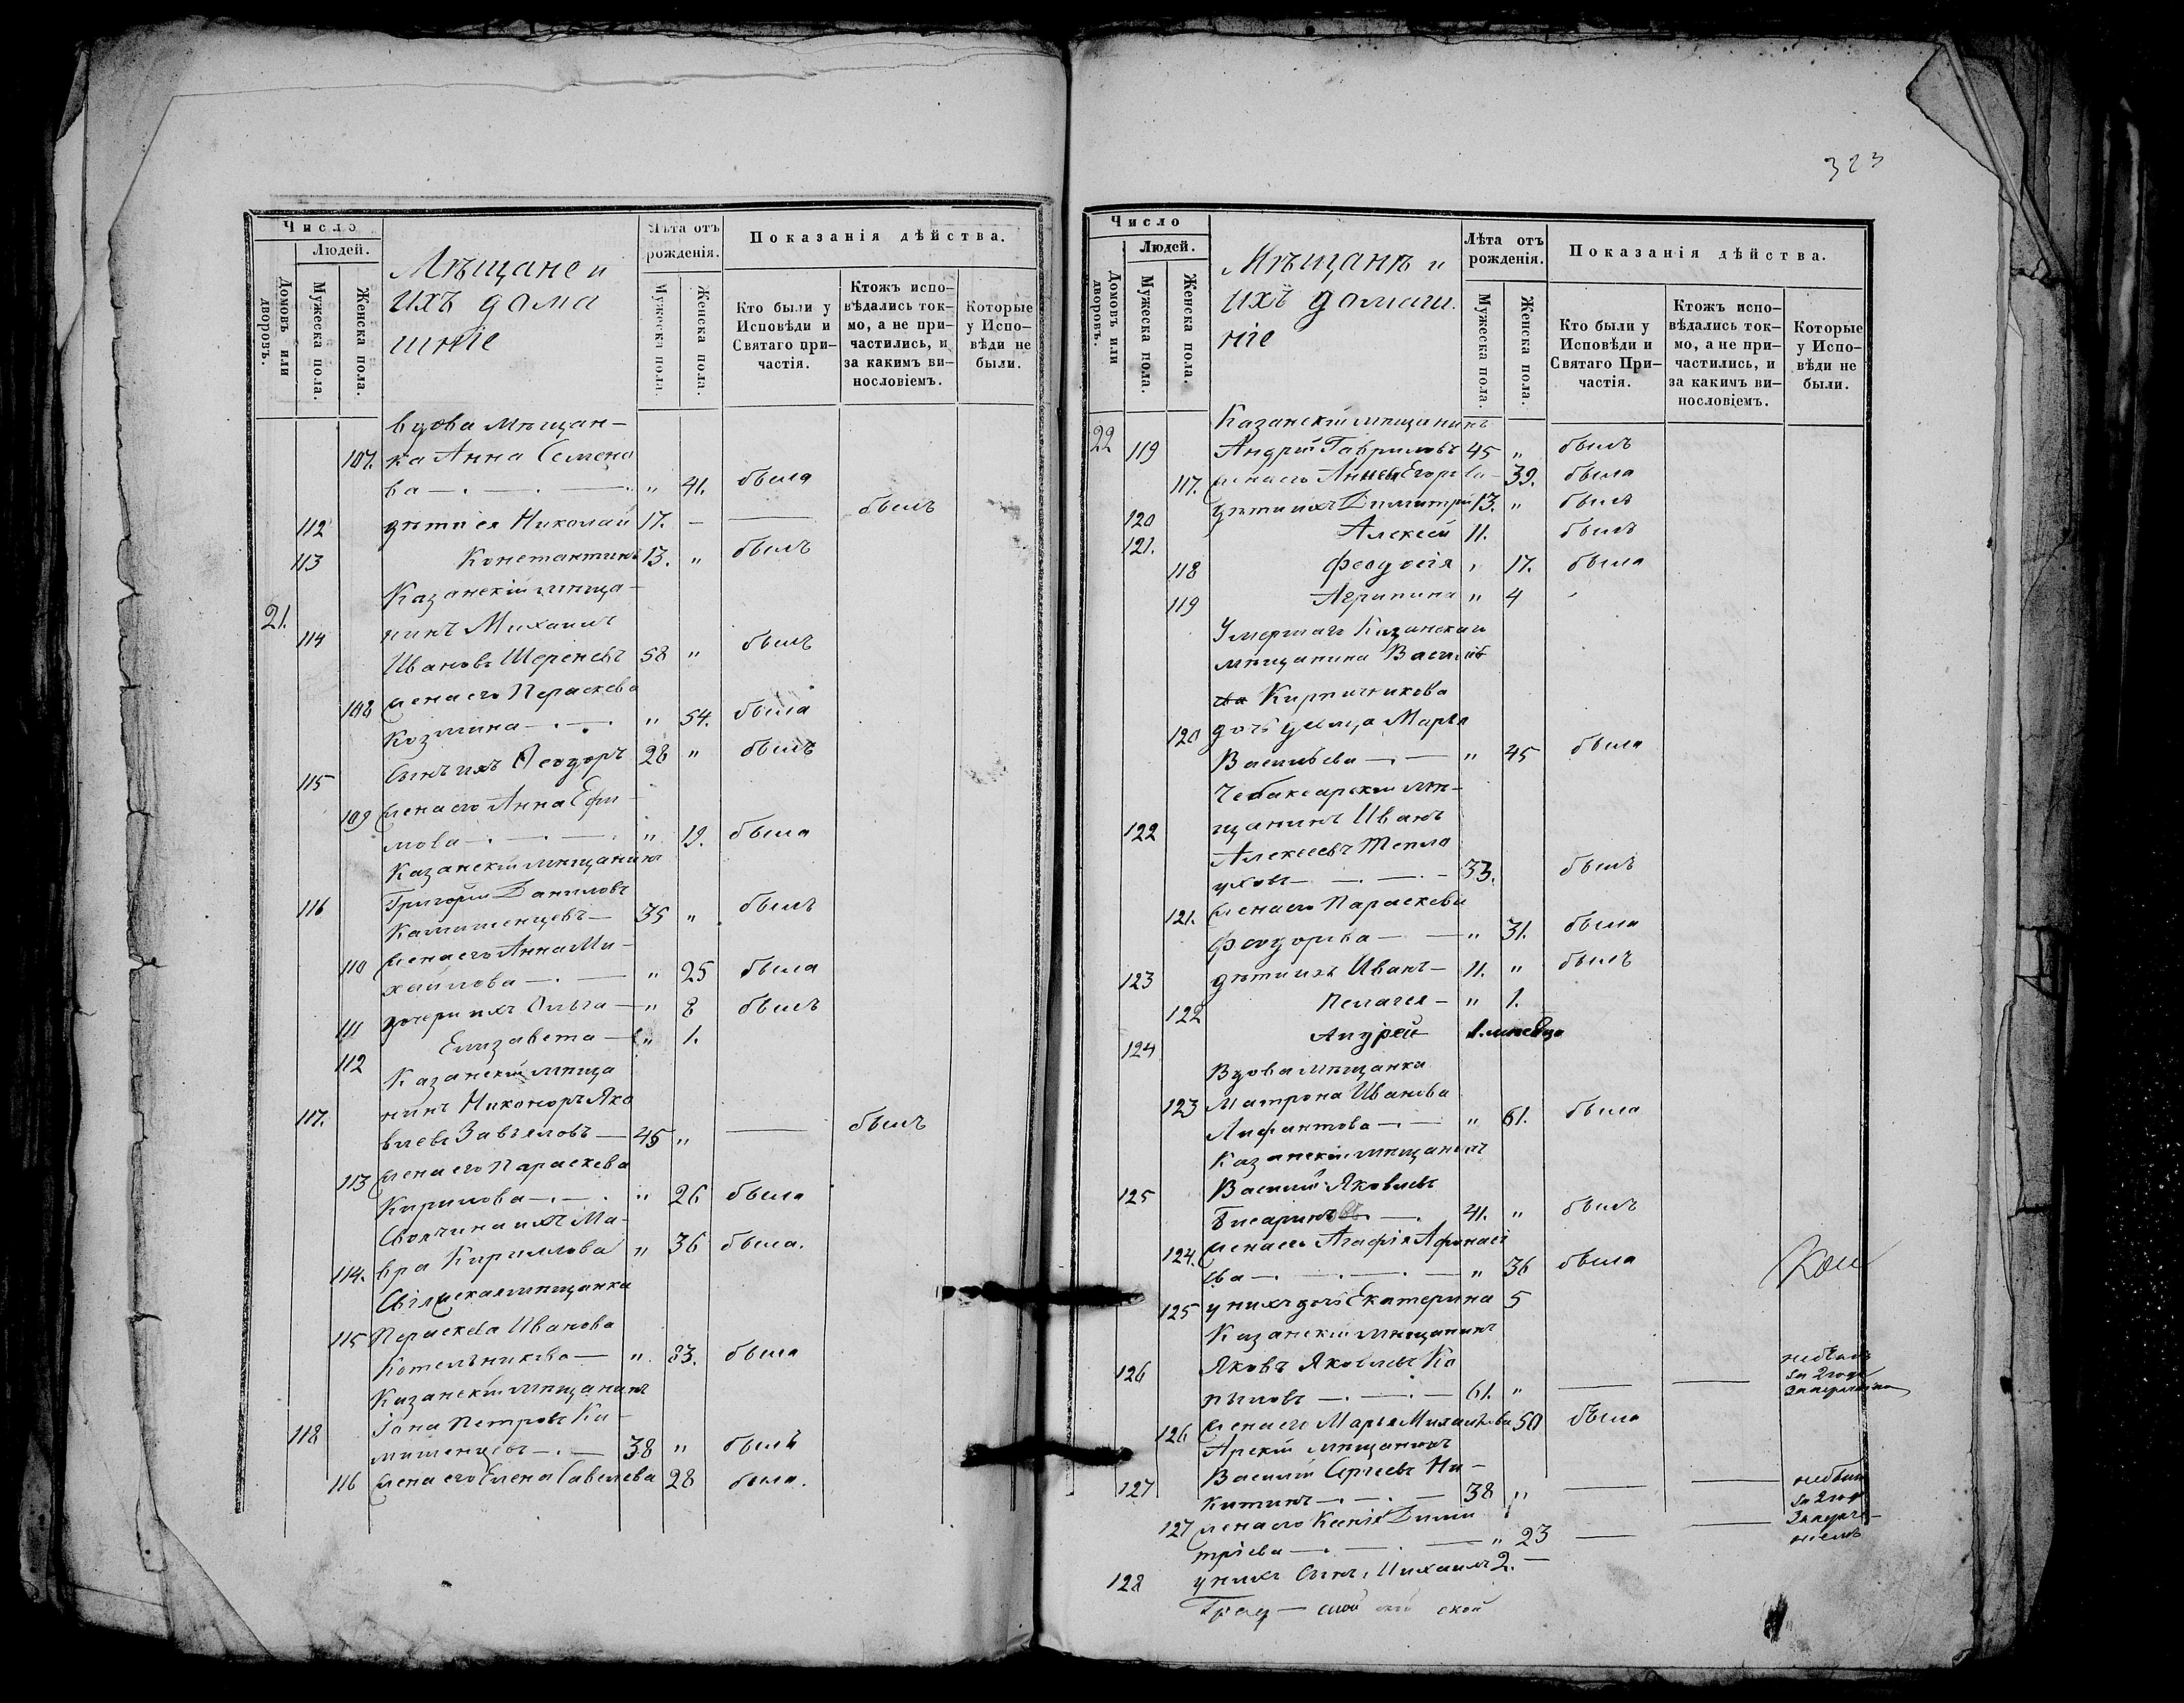 Число
Людей.
Домовъ или дворовъ.
Мужеска пола.
Женска пола.
Мѣщане и
ихъ дома
шніе
Лѣта отъ рожденія.
Мужеска пола.
Женска пола.
Показанія дѣйства.
Кто были у Исповѣди и Святаго при-частія.
Ктожъ испо-вѣдались ток-мо, а не при-частились, и за какимъ ви-нословіемъ.
Которые у Испо-вѣди не были.
вдова мѣщан-
107. ка Анна Семено
ва — " 41. была
112 дѣти ея Николай 17. — былъ
113 Константинъ 13. " былъ
Казанскій мѣща-
21. 114 нинъ Михаилъ
Ивановъ 58 " былъ
108 жена его Параскева
Козмина — " 54. была
115 Сынъ ихъ Ѳеодоръ 28 " былъ
109 жена его Анна Ефи-
мова — " 19. была
Казанскій мѣщанинъ
116 Григорій Даниловъ
Камашенцевъ — 35 " былъ
110 жена его Анна Ми-
хайлова — " 25 была
111 дочери ихъ Ольга — " 8 былъ
112 Елизавета — " 1.
Казанскій мѣща
117. нинъ Никоноръ Яко
влевъ Завьяловъ — 45 " — былъ
113 жена его Параскева
Кирилова — " 26 была
Своячина ихъ Ма-
114. вра Кириллова " 36 была.
Свіяжская мѣщанка
115 Параскева Иванова
Котельникова — " 83. была
Казанскій мѣщанинъ
118 Іона Петровъ Ка-
машенцевъ — 38 " былъ
116 жена его Елена Савелева 28 была.
323
Число
Людей.
Домовъ или дворовъ.
Мужеска пола.
Женска пола.
Мѣщанѣ и
ихъ домаш.
ніе
Лѣта отъ рожденія.
Мужеска пола.
Женска пола.
Показанія дѣйства.
Кто были у Исповѣди и Святаго При-частія.
Ктожъ испо-вѣдались ток-мо, а не при-частились, и за какимъ ви-нословіемъ.
Которые у Испо-вѣди не были.
Казанскій мѣщанинъ
22 119 Андрей Гавриловъ 45 " былъ
117. жена его Егорова — 39. была
120 дѣти ихъ Димитрій 13. " былъ
121. Алексей 11. былъ
118 Феодосія " 17. была
119 Агрипина " 4
Умершаго Казанскаго
мѣщанина Василія
Кирпичникова
120 дочь дѣвица Марья
Васильева — " 45 была
Чебаксарскій мѣ-
122 щанинъ Иванъ
Алексеевъ Тепло
уховъ — 33. былъ
121. жена его Параскева
Феодорова — " 31. была
123 дѣти ихъ Иванъ — 11. " былъ
122 Пелагея — " 1.
124 Андрей 1. месяца
Вдова мѣщанка
123 Матрона Иванова
Лифантова — " 61. была
Казанскій мѣщанинъ
125 Василій Яковлевъ
Бисаринъ — 41. " былъ
124. жена его Агафія Афонась
ева — " 36 была
125 у нихъ дочь Екатерина 5
Казанскій мѣщанинъ
126 Яковъ Яковлевъ Ко
пыловъ — 61. " — — небылъ
за 2 года
126 жена его Марья Михайлова 50 была
Арскій мѣщанинъ
127 Василій Сергеевъ Ни-
китинъ — 38 " — — небылъ
за 2 года
127 жена его Ксенія Дими
тріева — " 23 — —
128 у нихъ Сынъ Михаилъ 2. —